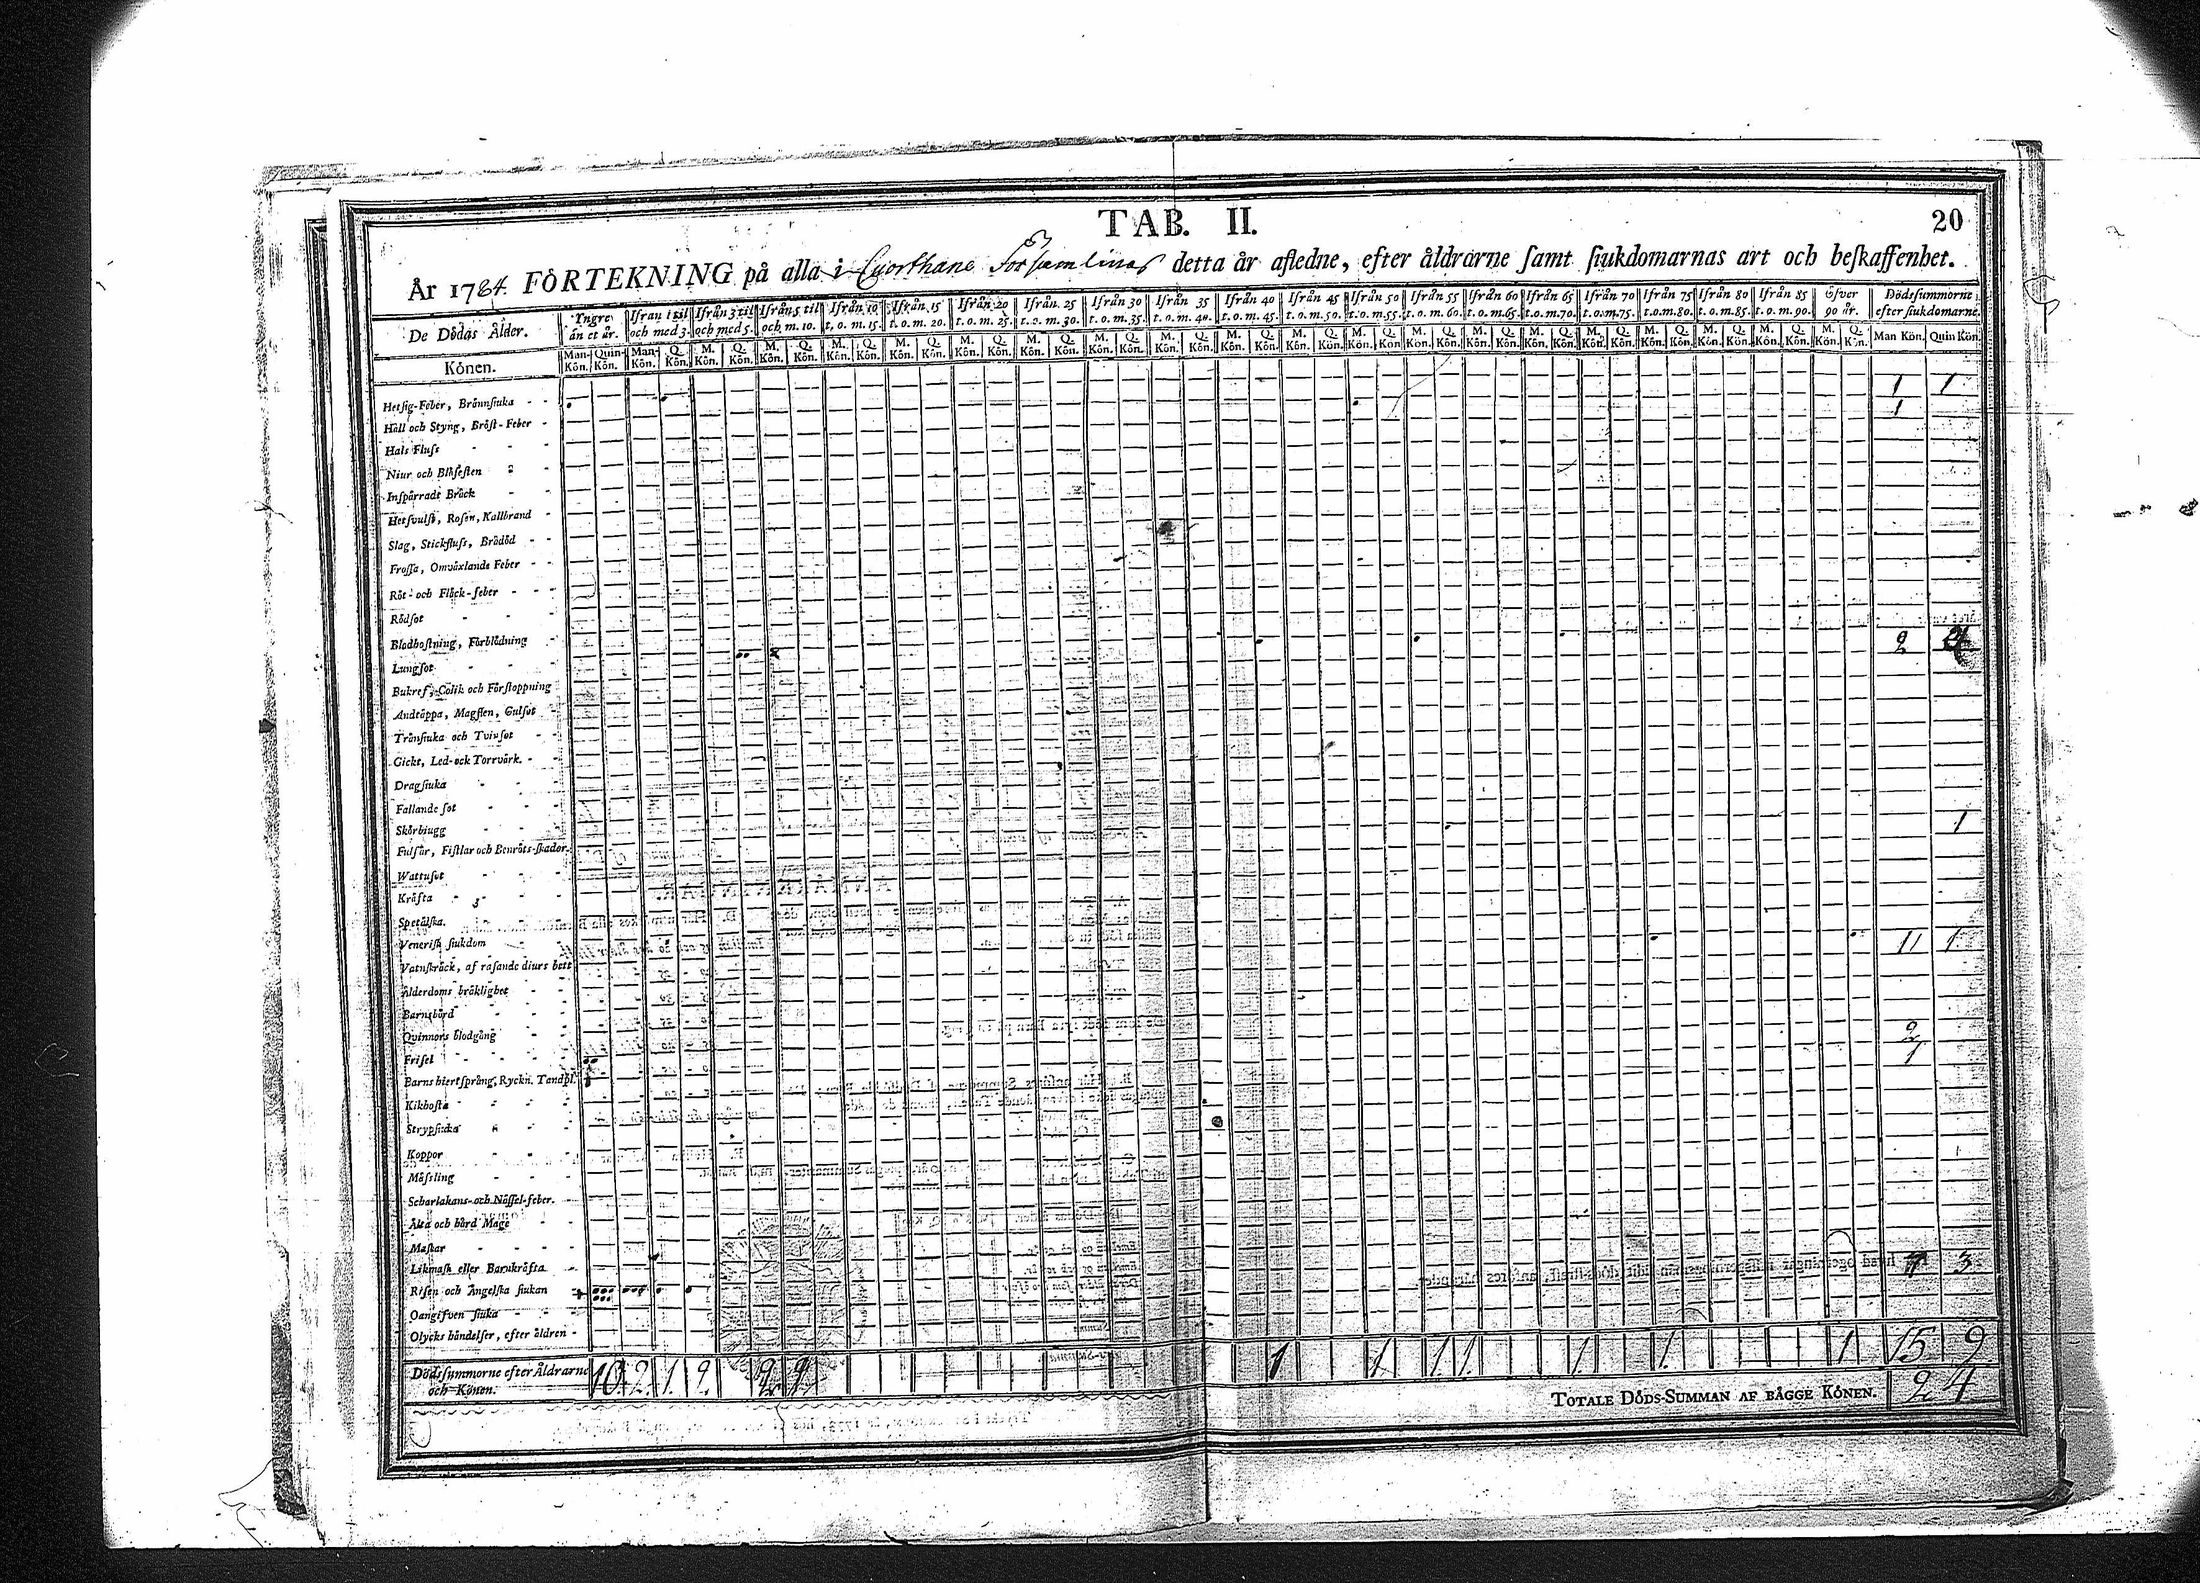 TAB. II.
20
År 1784. FÖRTEKNING på alla i församlings detta år afledne, efter åldrarne samt siukdomarnas art och beskaffenhet.
De Dödas Ålder. Yngre än et år. Ifrån 1 til och med 3. Ifrån 3 til och med 5. Ifrån 5 til och m. 10. Ifrån 10 t. o. m. 15. Ifrån 15 t. o. m. 20. Ifrån 20 t. o. m. 25. Ifrån 25 t. o. m. 30. Ifrån 30 t. o. m. 35. Ifrån 35 t. o. m. 40. Ifrån 40 t. o. m. 45. Ifrån 45 t. o. m. 50. Ifrån 50 t. o. m. 55. Ifrån 55 t. o. m. 60. Ifrån 60 t. o. m. 65. Ifrån 65 t. o. m. 70. Ifrån 70 t. o. m. 75. Ifrån 75 t. o. m. 80. Ifrån 80 t. o. m. 85. Ifrån 85 t. o. m. 90. Öfver 90 år. Dödssummorne efter siukdomarne.
Könen. Man-Kön. Quin-Kön. Man-Kön. Q. Kön. M. Kön. Q. Kön. M. Kön. Q. Kön. M. Kön. Q. Kön. M. Kön. Q. Kön. M. Kön. Q. Kön. M. Kön. Q. Kön. M. Kön. Q. Kön. M. Kön. Q. Kön. M. Kön. Q. Kön. M. Kön. Q. Kön. M. Kön. Q. Kön. M. Kön. Q. Kön. M. Kön. Q. Kön. M. Kön. Q. Kön. M. Kön. Q. Kön. M. Kön. Q. Kön. M. Kön. Q. Kön. M. Kön. Q. Kön. M. Kön. Q. Kön. Man Kön. Quin Kön.
Hetsig-Feber, Brännsiuka - - 1 1
Håll och Styng, Bröst-Feber - 1
Hals Fluss - - -
Niur och Blåsesten - -
Inspärradt Bråck - -
Hetsvulst, Rosen, Kallbrand -
Slag, Stickfluss, Brådöd - -
Frossa, Omväxlande Feber - -
Röt- och Fläck-feber - - -
Rödsot - - -
Blodhostning, Förblödning -
Lungsot - - - 2
Bukref, Colik och Förstoppning
Andtäppa, Magsten, Gulsot -
Trånsiuka och Tvinsot - -
Gickt, Led- ock Torrvärk. - -
Dragsiuka - - -
Fallande sot - - -
Skörbiugg - - -
Fulsår, Fistlar och Benröts-skador. 1
Wattusot - - -
Kräfta - - - -
Spetälska. - - -
Venerisk siukdom - -
Vatnskräck, af rasande diurs bett 11 1
Ålderdoms bräklighet - -
Barnsbörd - - -
Quinnors blodgång - -
Frisel - - - - 2
Barns hiertsprång, Ryckn. Tandpl. 1
Kikhosta - - - -
Strypsiuka - - -
Koppor - - -
Mässling - - -
Scharlakans- och Nässel-feber. -
Älta och hård Mage - -
Maskar - - - -
Likmask eller Barnkräfta - -
Risen och Ängelska siukan - 3
Oangifven siuka - -
Olycks händelser, efter åldren -
Dödssummorne efter Åldrarne och Könen. 10 2 1 2 2 2 1 1 1 1 1 1 1 15 9
TOTALE DÖDS-SUMMAN AF BÄGGE KÖNEN. 24